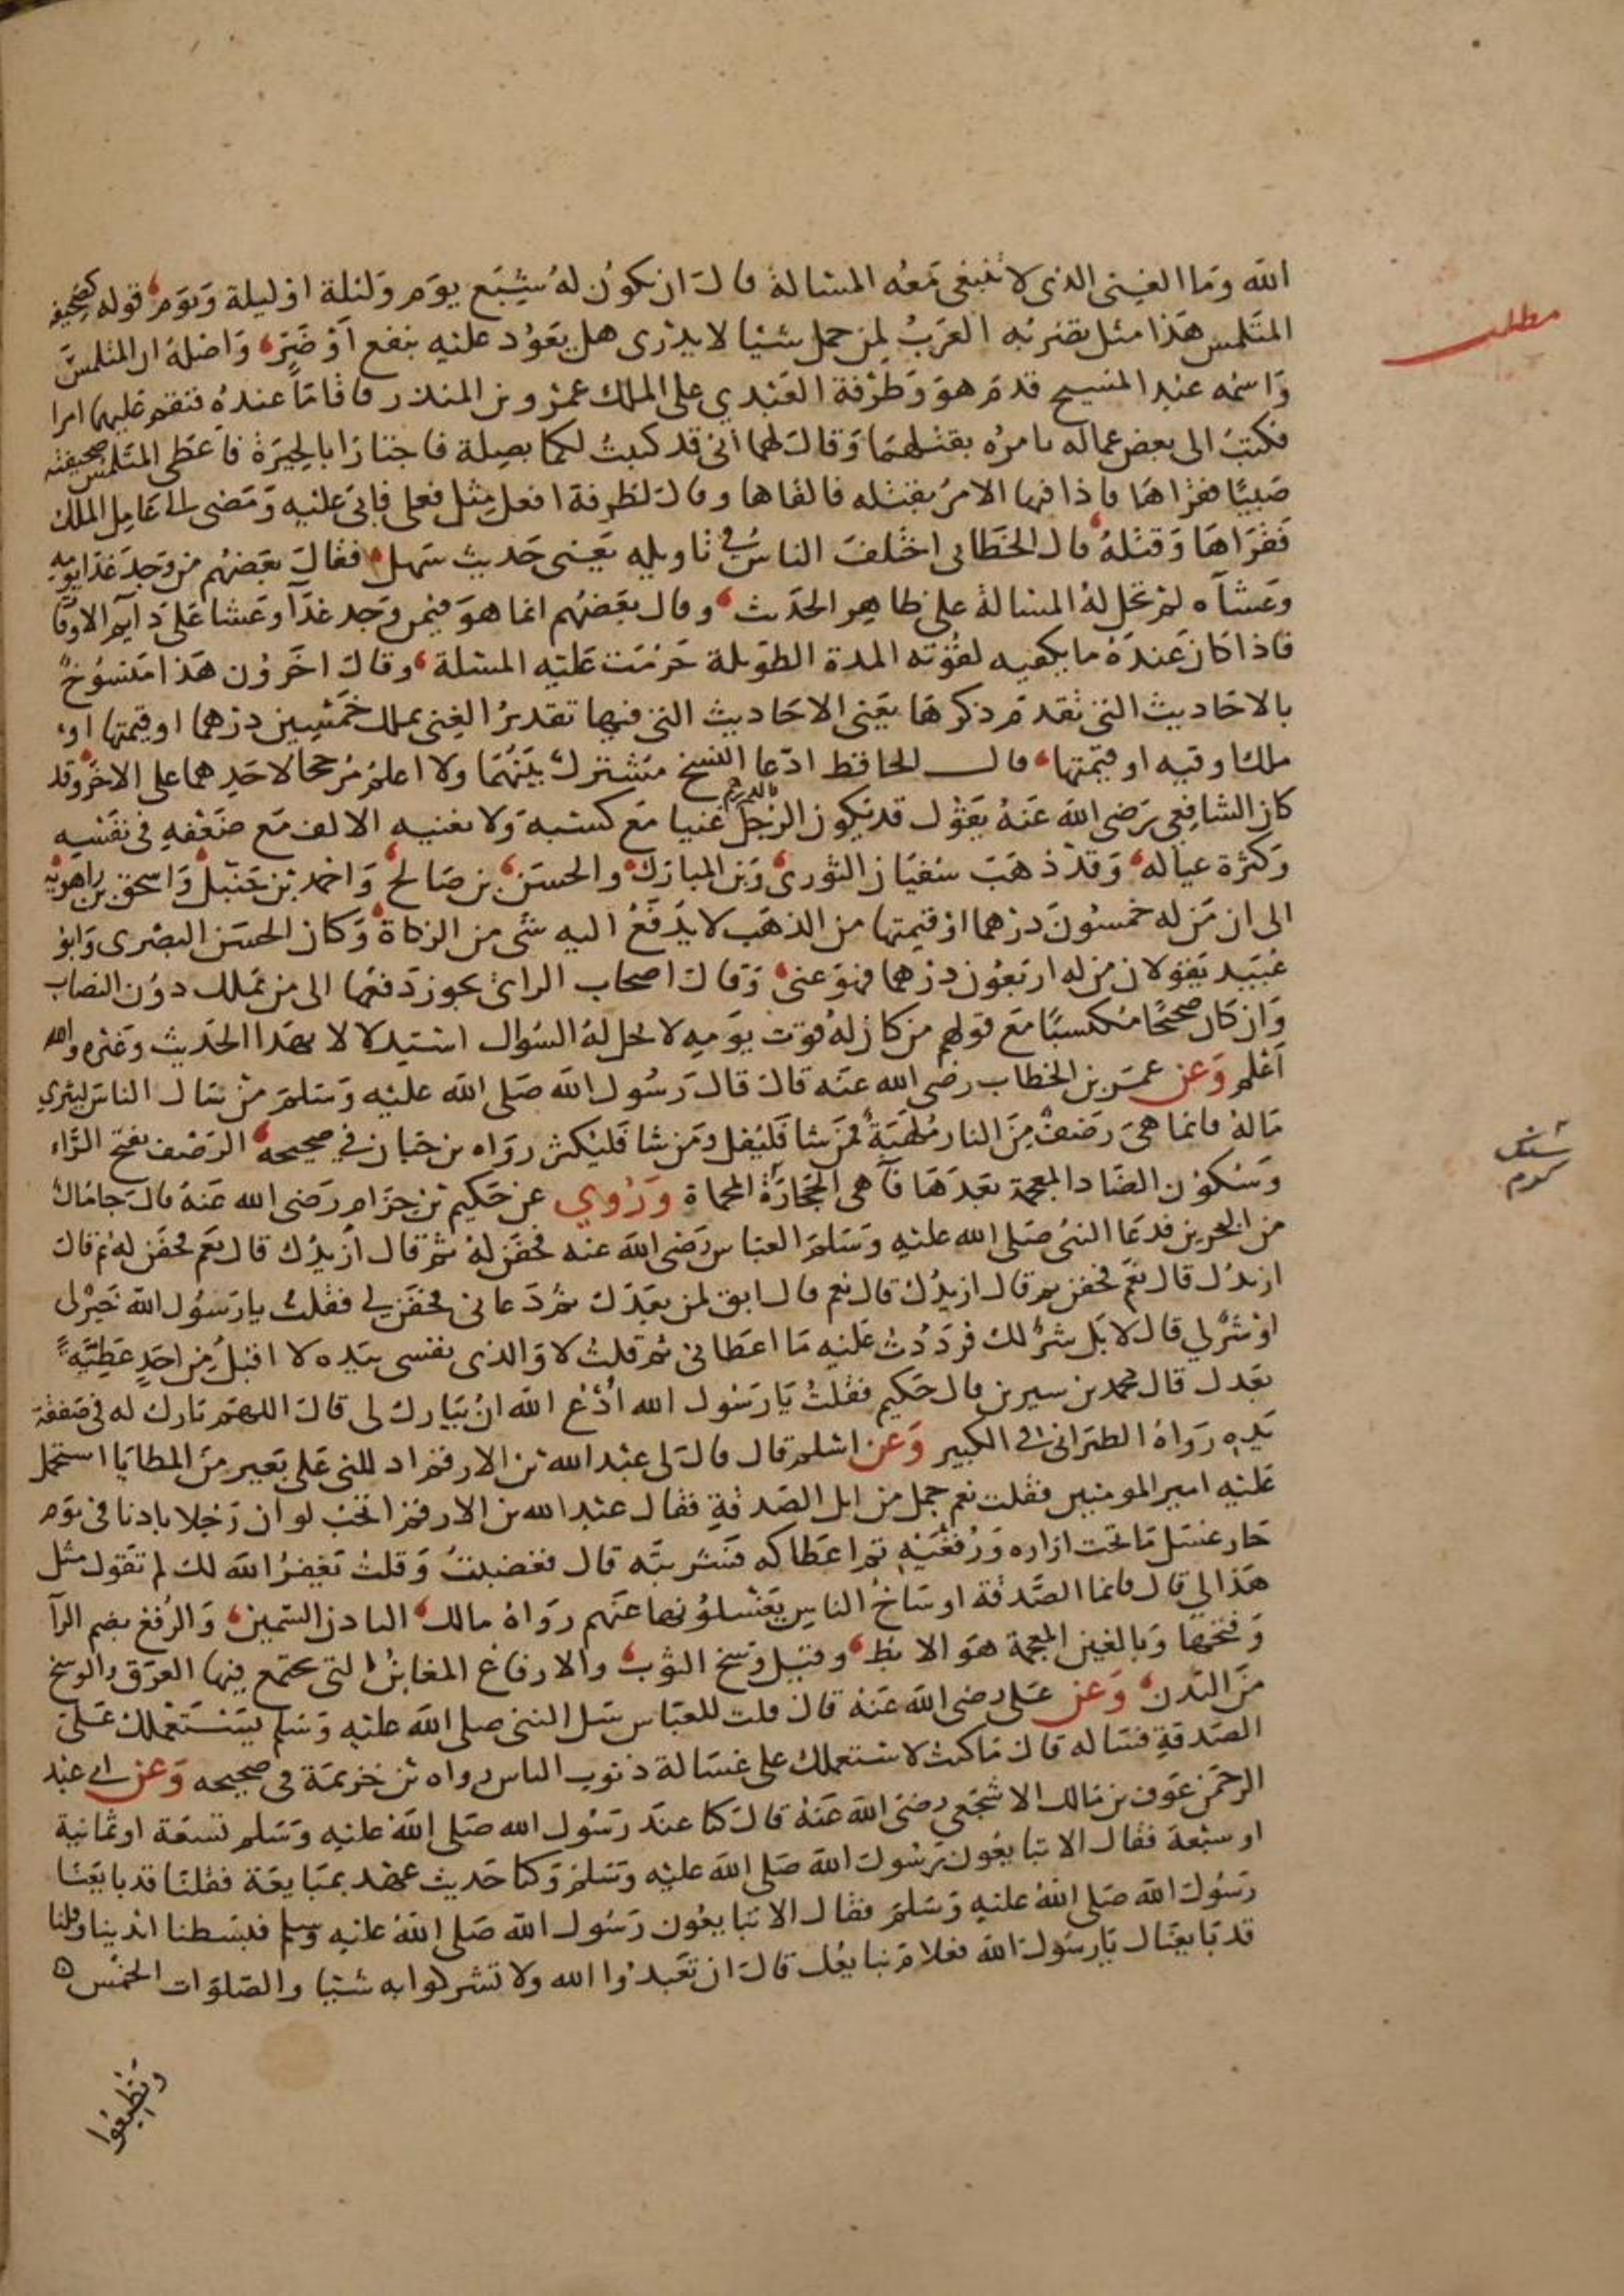 الله وما الغنى الذى لا تنبغى معه المسالة قال ان يكون له شبع يوم وليلة او ليلة ويوم قوله كصحيفة
مطلب
المتلمس هذا مثل تضربه العرب لمن حمل شئيا لا يدرى هل يعود عليه بنفع او ضر واصله ان المتلمس
واسمه عبد المسيح قدم هو وطرفة العبدي على الملك عمرو بن المنذر فاقاما عنده فنقم عليهما امرا
فكتب الى بعض عماله يامره بقتلهما وقال لهما انى قد كتبت لكما بصلة فاجتازا بالحيرة فاعطى المتلمس صحيفته
صبيا فقراها فاذا فيها الامر بقتله فالقاها وقال لطرفة افعل مثل فعلى فابى عليه ومضى الى عامل الملك
فقراها وقتله قال الخطابى اختلف الناس فى تاويله يعنى حديث سهل فقال بعضهم من وجد غدا يومه
وعشاه لم تحل له المسالة على ظاهر الحديث وقال بعضهم انما هو فيمن وجد غدآ وعشا على دايم الاوقات
فاذا كان عنده ما يكفيه لقوته المدة الطويلة حرمت عليه المسئلة وقال اخرون هذا منسوخ
بالاحاديث التى تقدم ذكرها يعنى الاحاديث التى فيها تقدير الغنى بملك خمسين درهما او قيمتها او
ملك اوقيه او قيمتها قال الحافظ ادعا النسخ مشترك بينهما ولا اعلم مرجحا لاحدهما على الاخر وقد
كان الشافعى رضى الله عنه يقول قد يكون الرجل بالدرهم غنيا مع كسبه ولا يغنيه الالف مع ضعفه فى نفسه
وكثرة عياله وقد ذهب سفيان الثورى وبن المبارك والحسن بن صالح واحمد بن حنبل واسحق بن راهويه
الى ان من له خمسون درهما او قيمتها من الذهب لا يدفع اليه شى من الزكاة وكان الحسن البصرى وابو
عبيد يقولان من له اربعون درهما فهو غنى وقال اصحاب الراى يجوز دفعها الى من يملك دون النصاب
وان كان صحيحا مكتسبا مع قولهم من كان له قوت يومه لا يحل له السوال استدلالا بهذا الحديث وغيره والله
اعلم وعن عمر بن الخطاب رضى الله عنه قال قال رسول الله صلى الله عليه وسلم من سال الناس ليثري
ماله فانما هى رضف من النار ملهبة فمن شا فليقل ومن شا فليكثر رواه بن حبان في صحيحه الرضف بفتح الراء
وسكون الضاد المعجمة بعدها فآ هى الحجارة المحماة وروي عن حكيم بن حزام رضى الله عنه قال جا مال
من البحرين فدعا النبى صلى الله عليه وسلم العباس رضى الله عنه فحفن له ثم قال ازيدك قال نعم فحفن له ثم قال
ازيدك قال نعم فحفن ثم قال ازيدك قال نعم قال ابق لمن بعدك ثم دعانى فحفن لي فقلت يا رسول الله خير لى
او شر لي قال لا بل شر لك فرددت عليه ما اعطانى ثم قلت لا والذى نفسى بيده لا اقبل من احد عطية
بعدك قال محمد بن سيرين قال حكيم فقلت يا رسول الله ادع الله ان يبارك لى قال اللهم بارك له فى صفقة
يده رواه الطبرانى فى الكبير وعن اسلم قال قال لى عبد الله بن الارقم ادللنى على بعير من المطايا استحمل
عليه امير المومنين فقلت نعم جمل من ابل الصدقة فقال عبد الله بن الارقم اتحب لو ان رجلا بادنا فى يوم
حار غسل ما تحت ازاره ورفغيه ثم اعطاكه فشربته قال فغضبت وقلت يغفر الله لك لم تقول مثل
هذا لى قال فانما الصدقة اوساخ الناس يغسلونها عنهم رواه مالك البادن السمين والرفغ بضم الرآ
وفتحها وبالغين المعجمة هو الابط وقيل وسخ الثوب والارفاغ المغابن التى يجتمع فيها العرق والوسخ
من البدن وعن على رضى الله عنه قال قلت للعباس سل النبى صلى الله عليه وسلم يستعملك على
الصدقة فساله قال ما كنت لاستعملك على غسالة ذنوب الناس رواه بن خزيمة فى صحيحه وعن ابى عبد
الرحمن عوف بن مالك الاشجعي رضى الله عنه قال كنا عند رسول الله صلى الله عليه وسلم تسعة او ثمانية
او سبعة فقال الا تبايعون رسول الله صلى الله عليه وسلم وكنا حديث عهد بمبايعة فقلنا قد بايعنا
رسول الله صلى الله عليه وسلم فقال الا تبايعون رسول الله صلى الله عليه وسلم فبسطنا ايدينا وقلنا
قد بايعناك يا رسول الله فعلام نبايعك قال ان تعبدوا الله ولا تشركوا به شئيا والصلوات الخمس
وتطيعوا